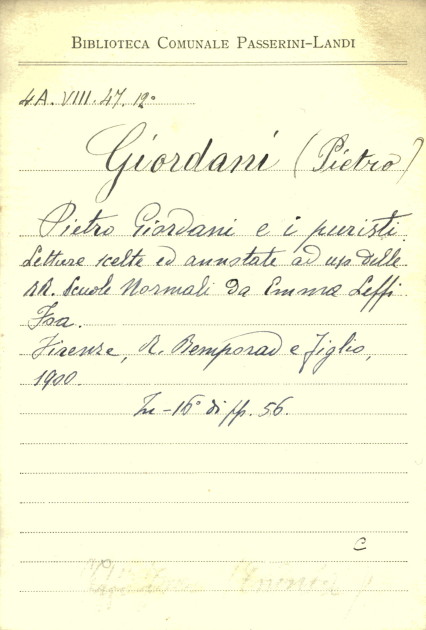 BIBLIOTECA COMUNALE PASSERINI-LANDI
4A. VIII. 47. 12°
Giordani (Pietro)
Pietro Giordani e i puristi
Letture scelte ed annotate ad uso delle
RR. Scuole Normali da Emma
Firenze, R. Bemporad e Figlio,
1900.
In-16° di pp. 56.
C